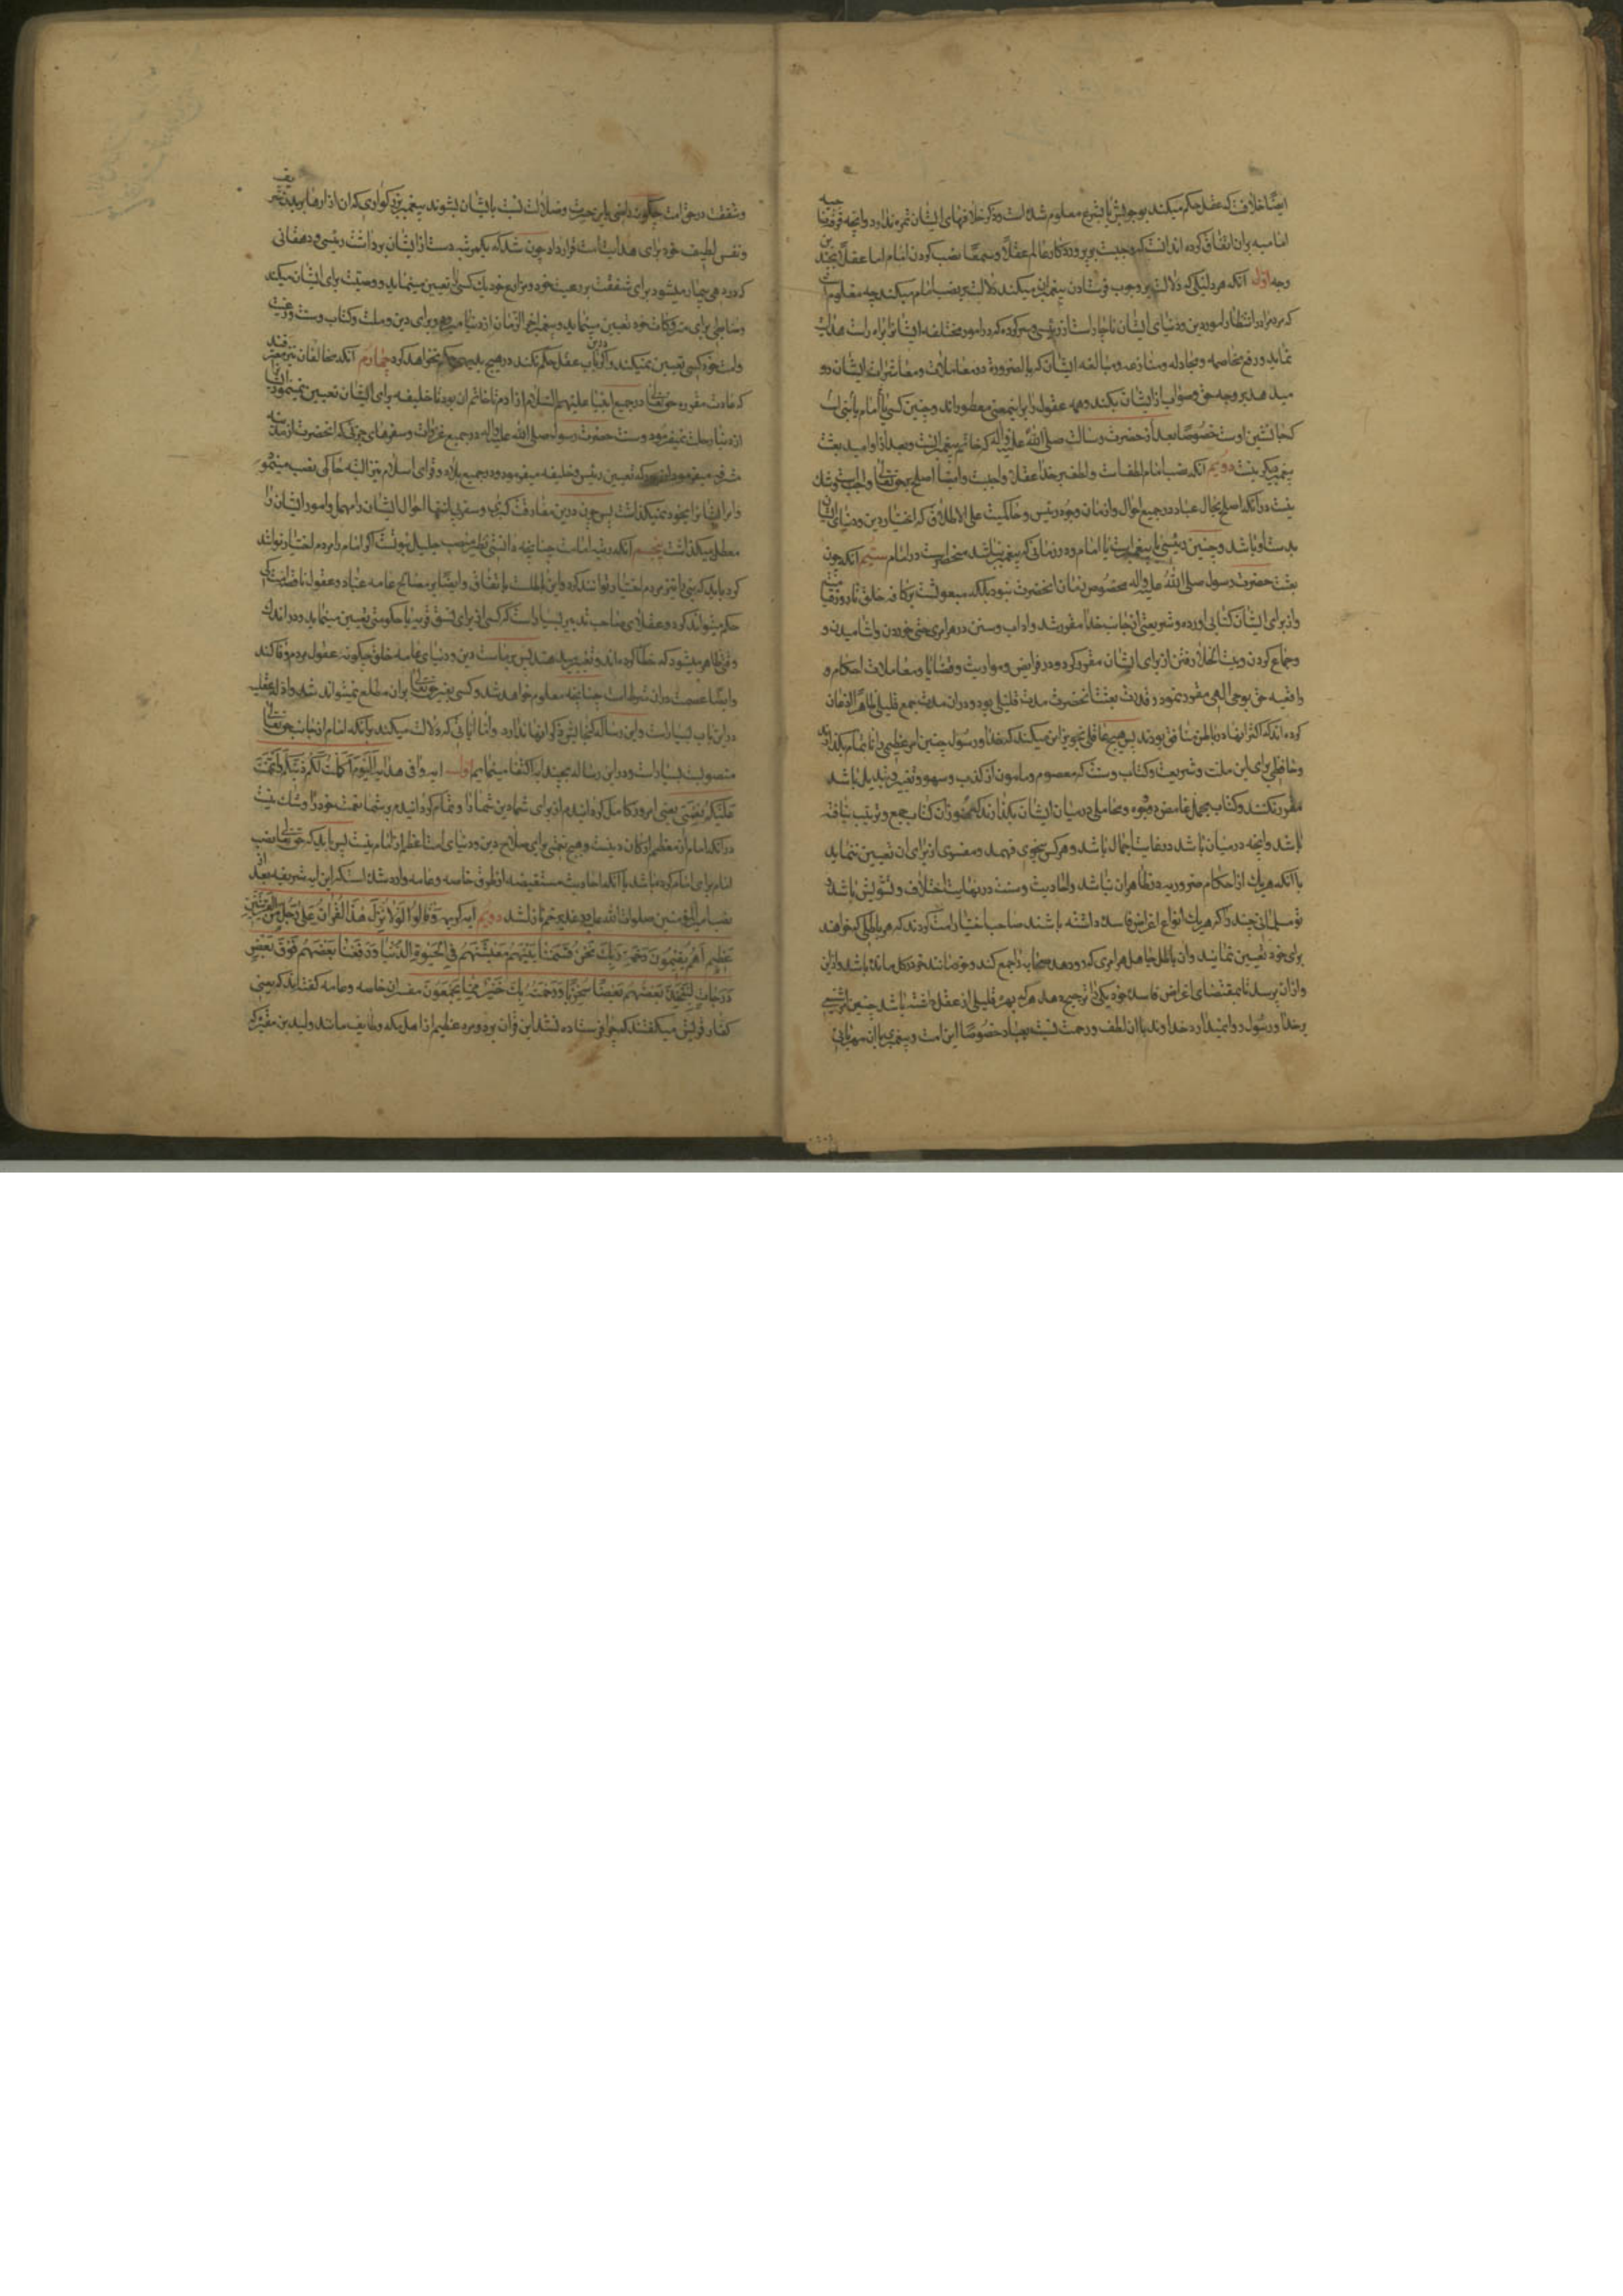 ایضا خلافت که عقل حکم میکند بوجوبش یا بشرع معلوم شده است و ذکر خلافهای ایشان ثمره ندارد و آنچه فرقه ناجیه
امامیه بران اتفاق کرده اند انست که واجبست بر پروردگار عالم عقلا و سمعا نصب کردن امام اما عقلا بچند
وجه اول آنکه هر دلیلی که دلالت بر وجوب فرستادن پیغمبران میکند دلالت بر نصب امام میکند چه معلوم است
که مردم را در انتظام امور دین و دنیای ایشان ناچار است از رئیسی و سرکرده که در امور مختلفه ایشانرا براه راست هدایت
نماید و رفع مخاصمه و مجادله و منازعه و مبالغه ایشان که بالضرورة در معاملات و معاشرات ایشان رو
میدهد بر وجه حق و صواب از ایشان بکند و همه عقول را برین معنی مفطورند و چنین کسی یا امام یا
که جانشین اوست خصوصا بعد از حضرت رسالت صلی الله علیه و آله که خاتم پیغمبرانست و بعد از او امید بعثت
پیغمبر دیگر نیست دویم آنکه نصب امام لطف است و لطف بر خدا عقلا واجبست و ایضا اصلح بر حق تعالی واجبست و شک
نیست در آنکه اصلح بحال عباد در جمیع احوال و ازمان وجود رئیس و حاکمیست علی الاطلاق که اختیار دین و دنیای ایشان
بدست او باشد و چنین رئیسی یا پیغمبر است یا امام و در زمانی که پیغمبر نباشد منحصر است در امام سیم آنکه چون
بعثت حضرت رسول صلی الله علیه و آله مخصوص زمان انحضرت نبود بلکه مبعوثست بر کافه خلق تا روز قیامت
و از برای ایشان کتابی آورده و شریعتی از جانب خدا مقرر شد و آداب و سنن در هر امری حتی خوردن و آشامیدن و
جماع کردن و بیت الخلا رفتن از برای ایشان مقرر کرد و در فرایض و مواریث و قضایا و معاملات احکام و
واقعیه حق بوحی الهی مقرر نمود و مدت بعثت انحضرت مدت قلیلی بود و در ان مدت جمع قلیلی ظاهرا اذعان
کرده اند که اکثر انها در باطن منافق بودند پس هیچ عاقلی تجویز این میکند که خدا و رسول چنین امر عظیمی را ناتمام بگذارند
و حافظی برای این ملت و شریعت و کتاب و سنت که معصوم و مامون از کذب و سهو و تغییر و تبدیل باشد
مقرر نکنند و کتاب مجمل غامض در میان ایشان بگذارند که هنوز ان کتاب جمع و ترتیب نیافته
باشد و آنچه در میان باشد در غایت اجمال باشد و هر کس بنحوی فهمد و مفسری از برای ان تعیین ننماید
با آنکه هر یک از احکام ضروریه در ظاهر ان نباشد و احادیث و سنت در نهایت اختلاف و تشویش باشد
نو مسلمانی چند را که هر یک انواع اغراض فاسده داشته باشند صاحب اختیار امت کردند که هر باطلی که خواهند
برای خود تعیین نمایند و ان باطل جاهل هر امری که رو دهد صحابه را جمع کند و خود مانند خر در گل مانده باشد و ازین
و از ان پرسد تا بمقتضای اغراض فاسده خود یکی را ترجیح دهد هر که بهره قلیلی از عقل داشته باشد چنین
بر خدا و رسول روا نمیدارد خداوند با ان لطف و رحمت نسبت بعباد خصوصا این امت و پیغمبری با ان مهربانی
و شفقت در حق امت چگونه راضی باین حیرت و ضلالت نسبت بایشان بشوند پیغمبر بزرگواری که ان آزارها بر بدن شریف
و نفس لطیف خود برای هدایت امت قرار داد چون شد که بیکمرتبه دست از ایشان برداشت رئیسی و دهقانی
که در دهی بیمار میشود برای شفقت بر رعیت خود و مزارع خود یک کسی تعیین مینماید و وصیت برای ایشان میکند
و ضابطی برای متروکات خود تعیین مینماید و پیغمبر آخر الزمان از دنیا میرود و برای دین و ملت و کتاب و سنت و رعیت
و امت خود کسی تعیین نمیکند و اگر درین باب عقل حکم نکند در هیچ بدیهی حکم نخواهد کرد چهارم آنکه مخالفان نیز معترفند
که عادت مقرره حق تعالی در جمیع انبیا علیهم السلام از آدم تا خاتم ان بود تا خلیفه برای ایشان تعیین نمینمود ایشانرا
از دنیا رحلت نمیفرمود و سنت حضرت رسول صلی الله علیه و آله در جمیع غزوات و سفرهای جزئی که انحضرت از مدینه
مشرفه میفرمود تعیین رئیس و خلیفه میفرمود و در جمیع بلاد و قرای اسلام نیز البته حاکمی نصب مینمود
و امر ایشانرا بخود نمیگذاشت پس چون درین مفارقت کبری و سفر بی انتها احوال ایشان را مهمل و امور ایشان را
معطل میگذاشت پنجم آنکه رتبه امامت چنانچه دانستی نظیر منصب جلیل نبوتست اگر امام را مردم اختیار توانند
کرد باید که نبی را نیز مردم اختیار توانند کرد و این باطلست باتفاق و ایضا بر مصالح عامه عباد و عقول ناقصه ایشان کی
حکم میتواند کرد و عقلای صاحب تدبیر بسیار است که کسی از برای نسق قریه یا حکومتی تعیین مینماید و در اندک
وقتی ظاهر میشود که خطا کرده اند و تغییر میدهند پس ریاست دین و دنیای عامه خلق چگونه عقول مردم وفا کند
و ایضا عصمت در ان شرطست چنانچه معلوم خواهد شد و کسی بغیر حق تعالی بران مطلع نمیتواند شد و ادله عقلیه
در این باب بسیار است و این رساله گنجایش ذکر انها ندارد و اما آیاتی که دلالت میکند بر آنکه امام از جانب حق تعالی
منصوبست بسیار است و در این رساله بچند آیه اکتفا مینمایم اول آیه وافی هدایه الیوم اکملت لکم دینکم و اتممت
علیکم نعمتی یعنی امروز کامل گردانیدم از برای شما دین شما را و تمام گردانیدم بر شما نعمت خود را و شک نیست
در آنکه امام از معظم ارکان دینست و هیچ نعمتی برای صلاح دین و دنیای امت اعظم از امام نیست پس باید که حق تعالی نصب
امام برای امت کرده باشد با آنکه احادیث مستفیضه از طرق خاصه و عامه وارد شده است که این آیه شریفه بعد از
نصب امیر المؤمنین صلوات الله علیه در غدیر خم نازل شد دویم آیه کریمه و قالوا لولا نزل هذا القران علی رجل من القریتین
عظیم اهم یقسمون رحمت ربک نحن قسمنا بینهم معیشتهم فی الحیوة الدنیا و رفعنا بعضهم فوق بعض
درجات لیتخذ بعضهم بعضا سخریا و رحمت ربک خیر مما یجمعون مفسران خاصه و عامه گفته اند که یعنی
کفار قریش میگفتند که چرا فرستاده نشد این قران بر دو مرد عظیم از اهل مکه و طایف مانند ولید بن مغیره که